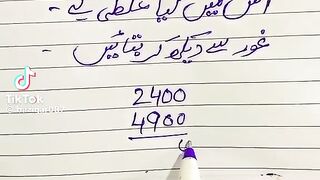 اس میں کیا غلطی ہے -
غور سے دیکھ کر بتائیں -
2400
4900
TikTok